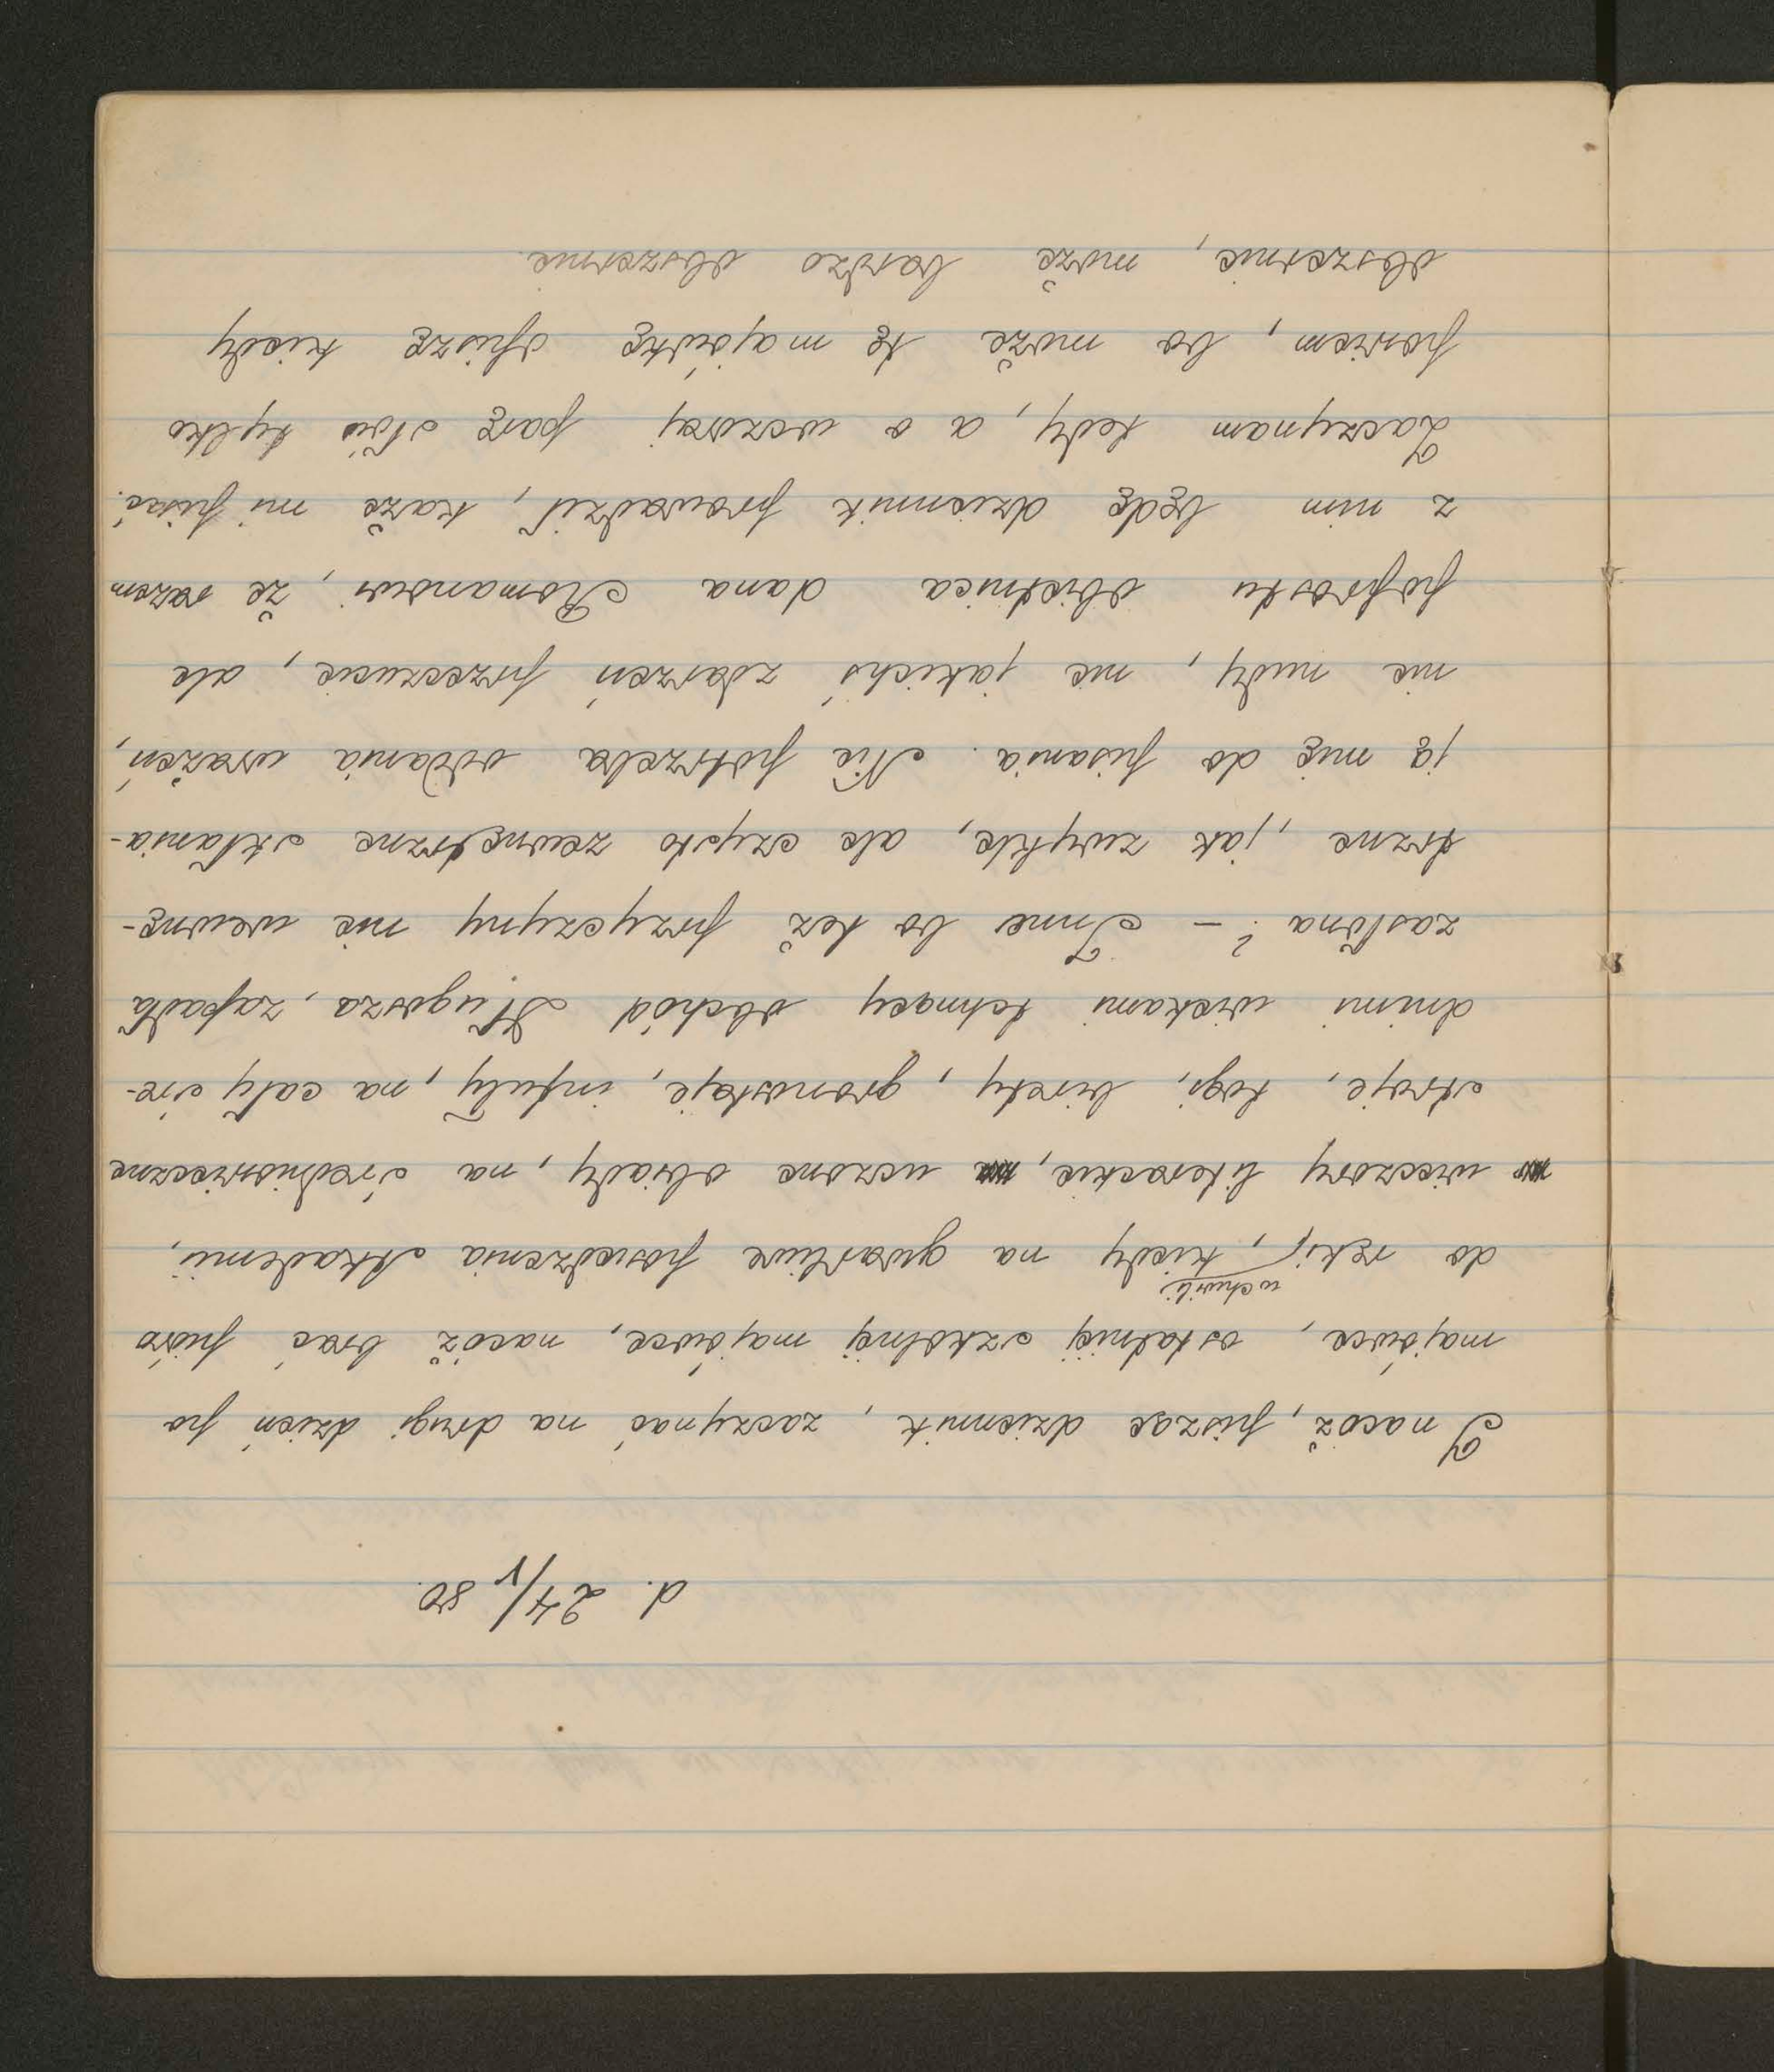 d. 24/V 80.
I nacóż, pisząc dziennik, zaczynać na drugi dzień po
majówce, ostatniéj szkolnéj majówce, nacóż brać pióro
do ręki, w chwili kiedy na gwarliwe posiedzenia Akademii,
wieczory literackie, uczone obiady, na średniowieczne
stroje, togi, birety, gronostaje, infuły, na cały śre-
dnimi wiekami tchnący obchód Długosza, zapadła
zasłona? – Inne bo też przyczyny nie wewnę-
trzne, jak zwykle, ale czysto zewnętrzne skłania-
ją mię do pisania. Nie potrzeba oddania wrażeń,
nie nudy, nie jakichś zdarzeń przeczucie, ale
poprostu obietnica dana Romanowi, że razem
z nim będę dziennik prowadził, każe mi pisać.
Zaczynam tedy, a o wczoraj parę słów tylko
powiem, bo może tę majówkę opiszę kiedy
obszernie, może bardzo obszernie.